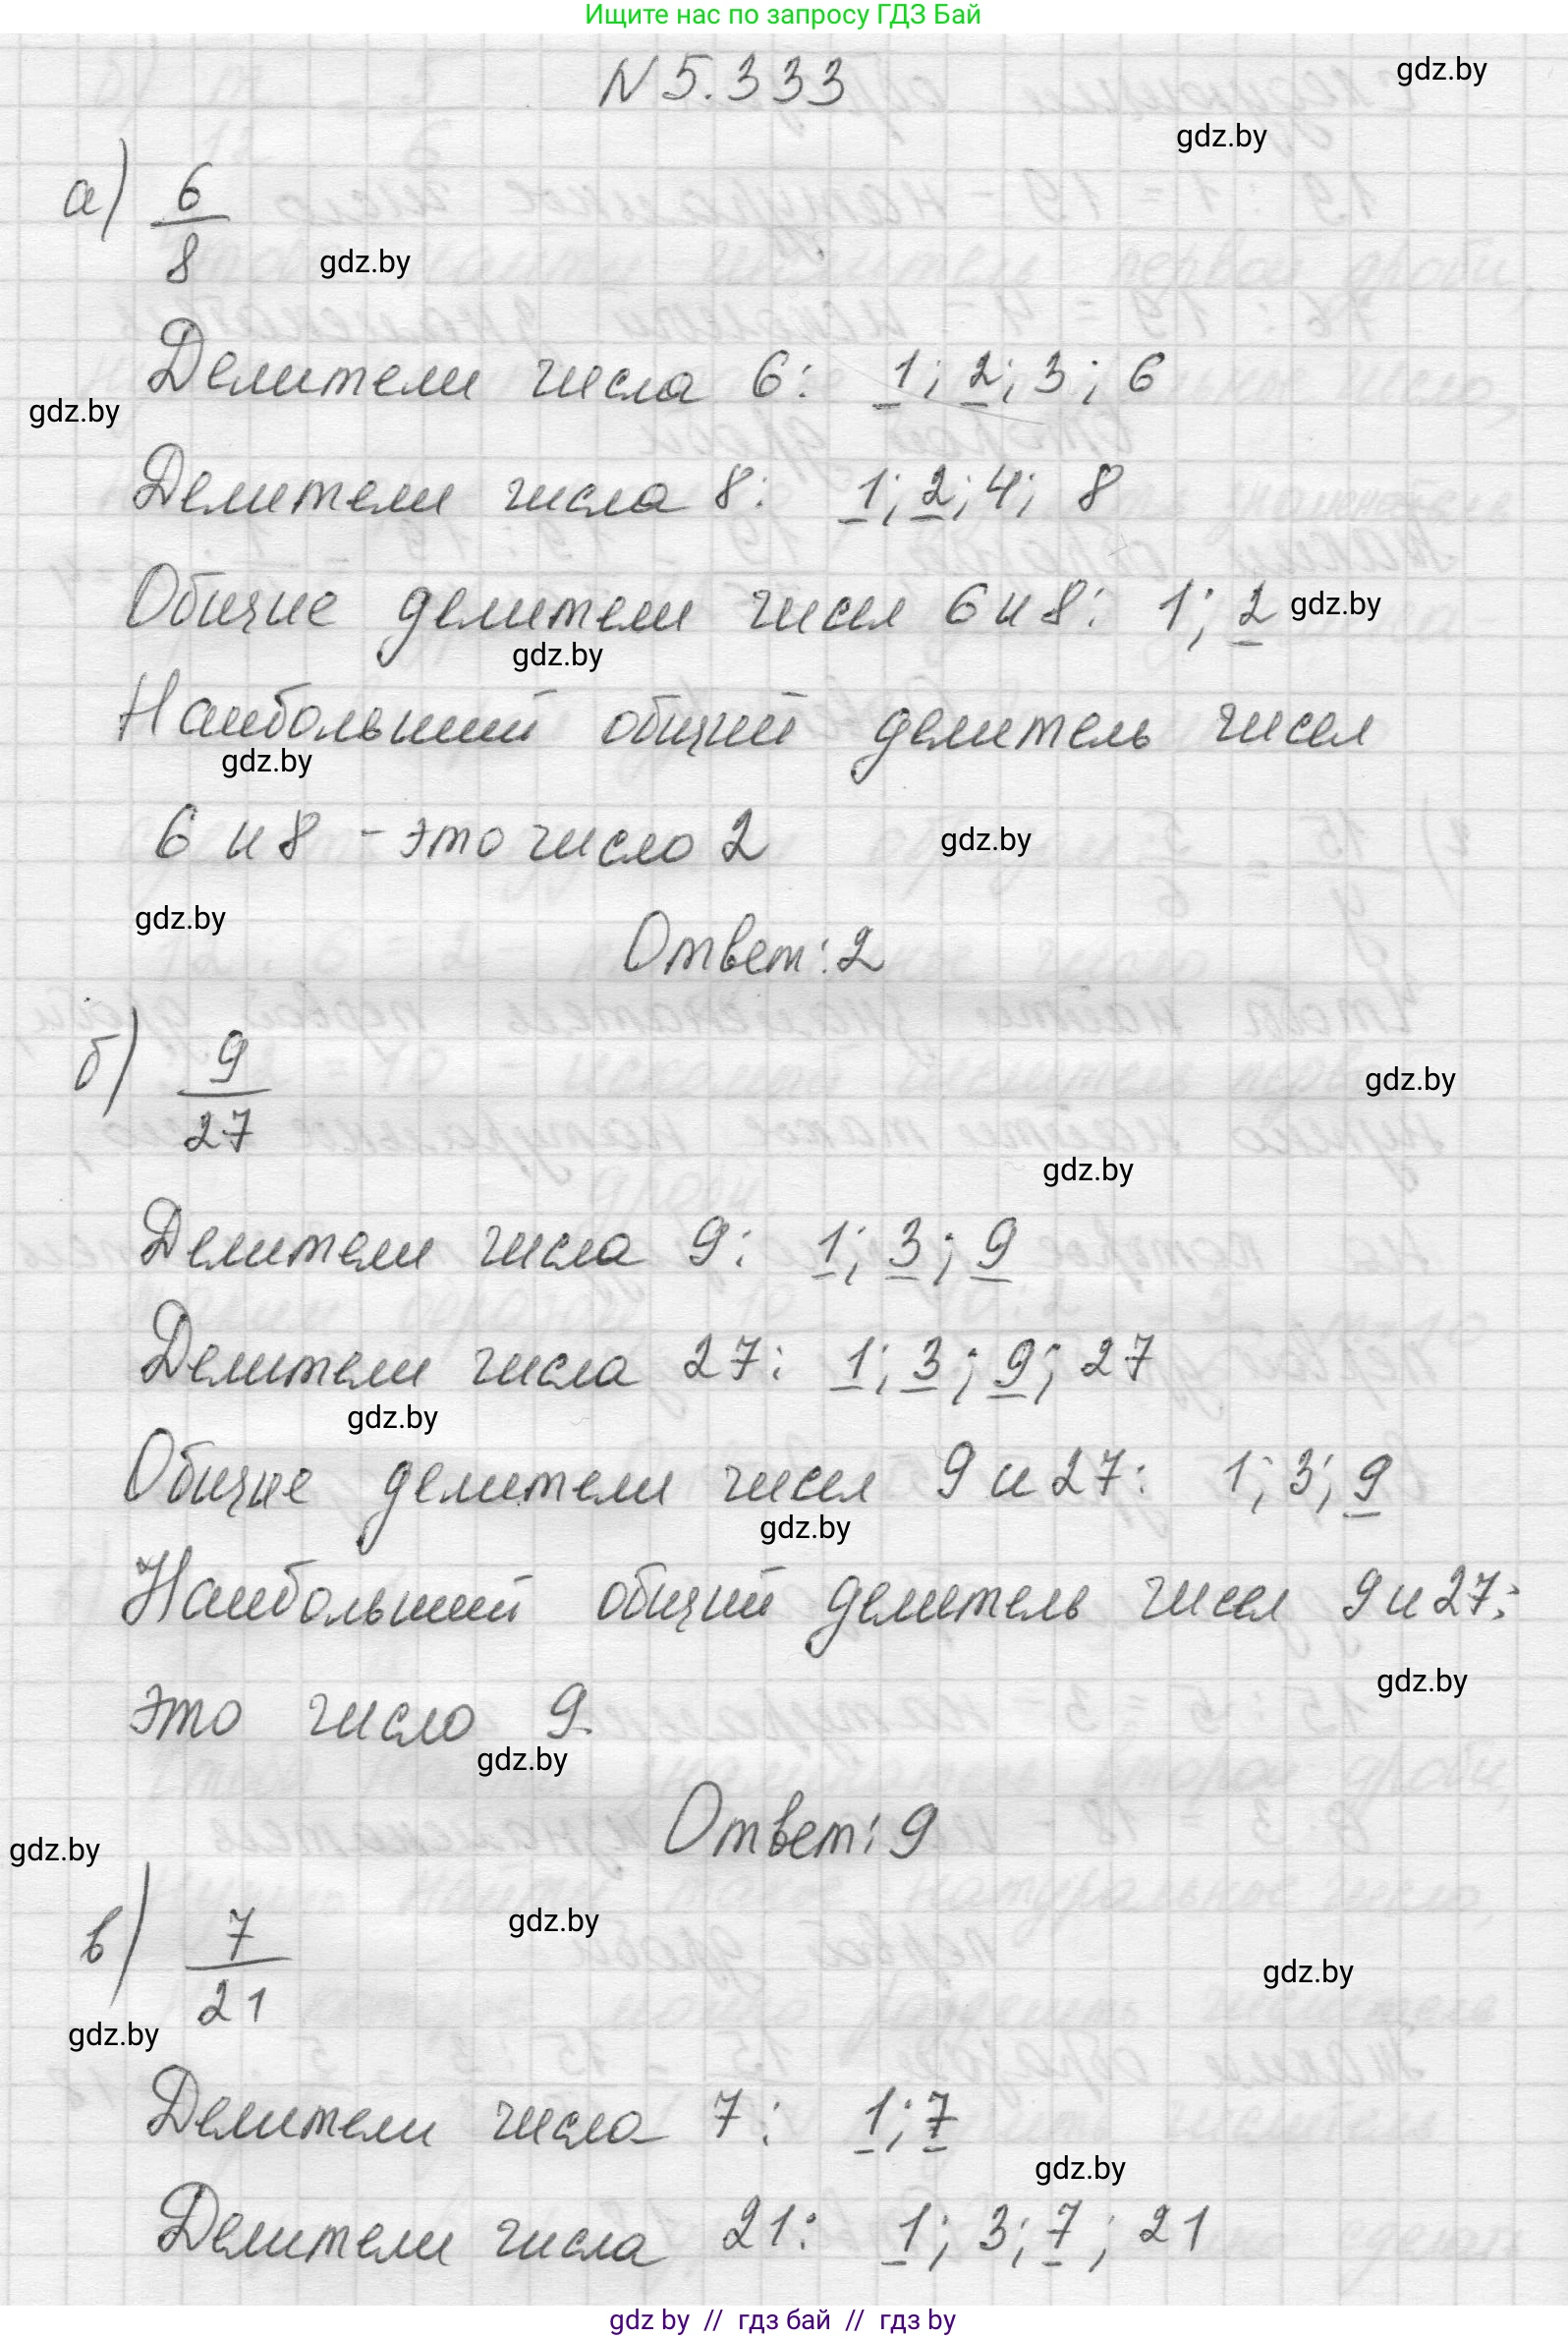 Ищите нас по запросу ГДЗ Бай
N 5.333
gdz.by
gdz.by
а) 6/8
gdz.by
Делители числа 6: 1; 2; 3; 6
gdz.by
Делители числа 8: 1; 2; 4; 8
Общие делители чисел 6 и 8: 1; 2
gdz.by
gdz.by
Наибольший общий делитель чисел
gdz.by
6 и 8 - это число 2
gdz.by
gdz.by
Ответ: 2
б) 9/27
gdz.by
gdz.by
Делители числа 9: 1; 3; 9
Делители числа 27: 1; 3; 9; 27
gdz.by
Общие делители чисел 9 и 27: 1; 3; 9
gdz.by
Наибольший общий делитель чисел 9 и 27:
gdz.by
это число 9.
gdz.by
Ответ: 9
gdz.by
в) 7/21
gdz.by
gdz.by
gdz.by
Делители числа 7: 1; 7
gdz.by
Делители числа 21: 1; 3; 7; 21
gdz by // гдз бай // гдз by